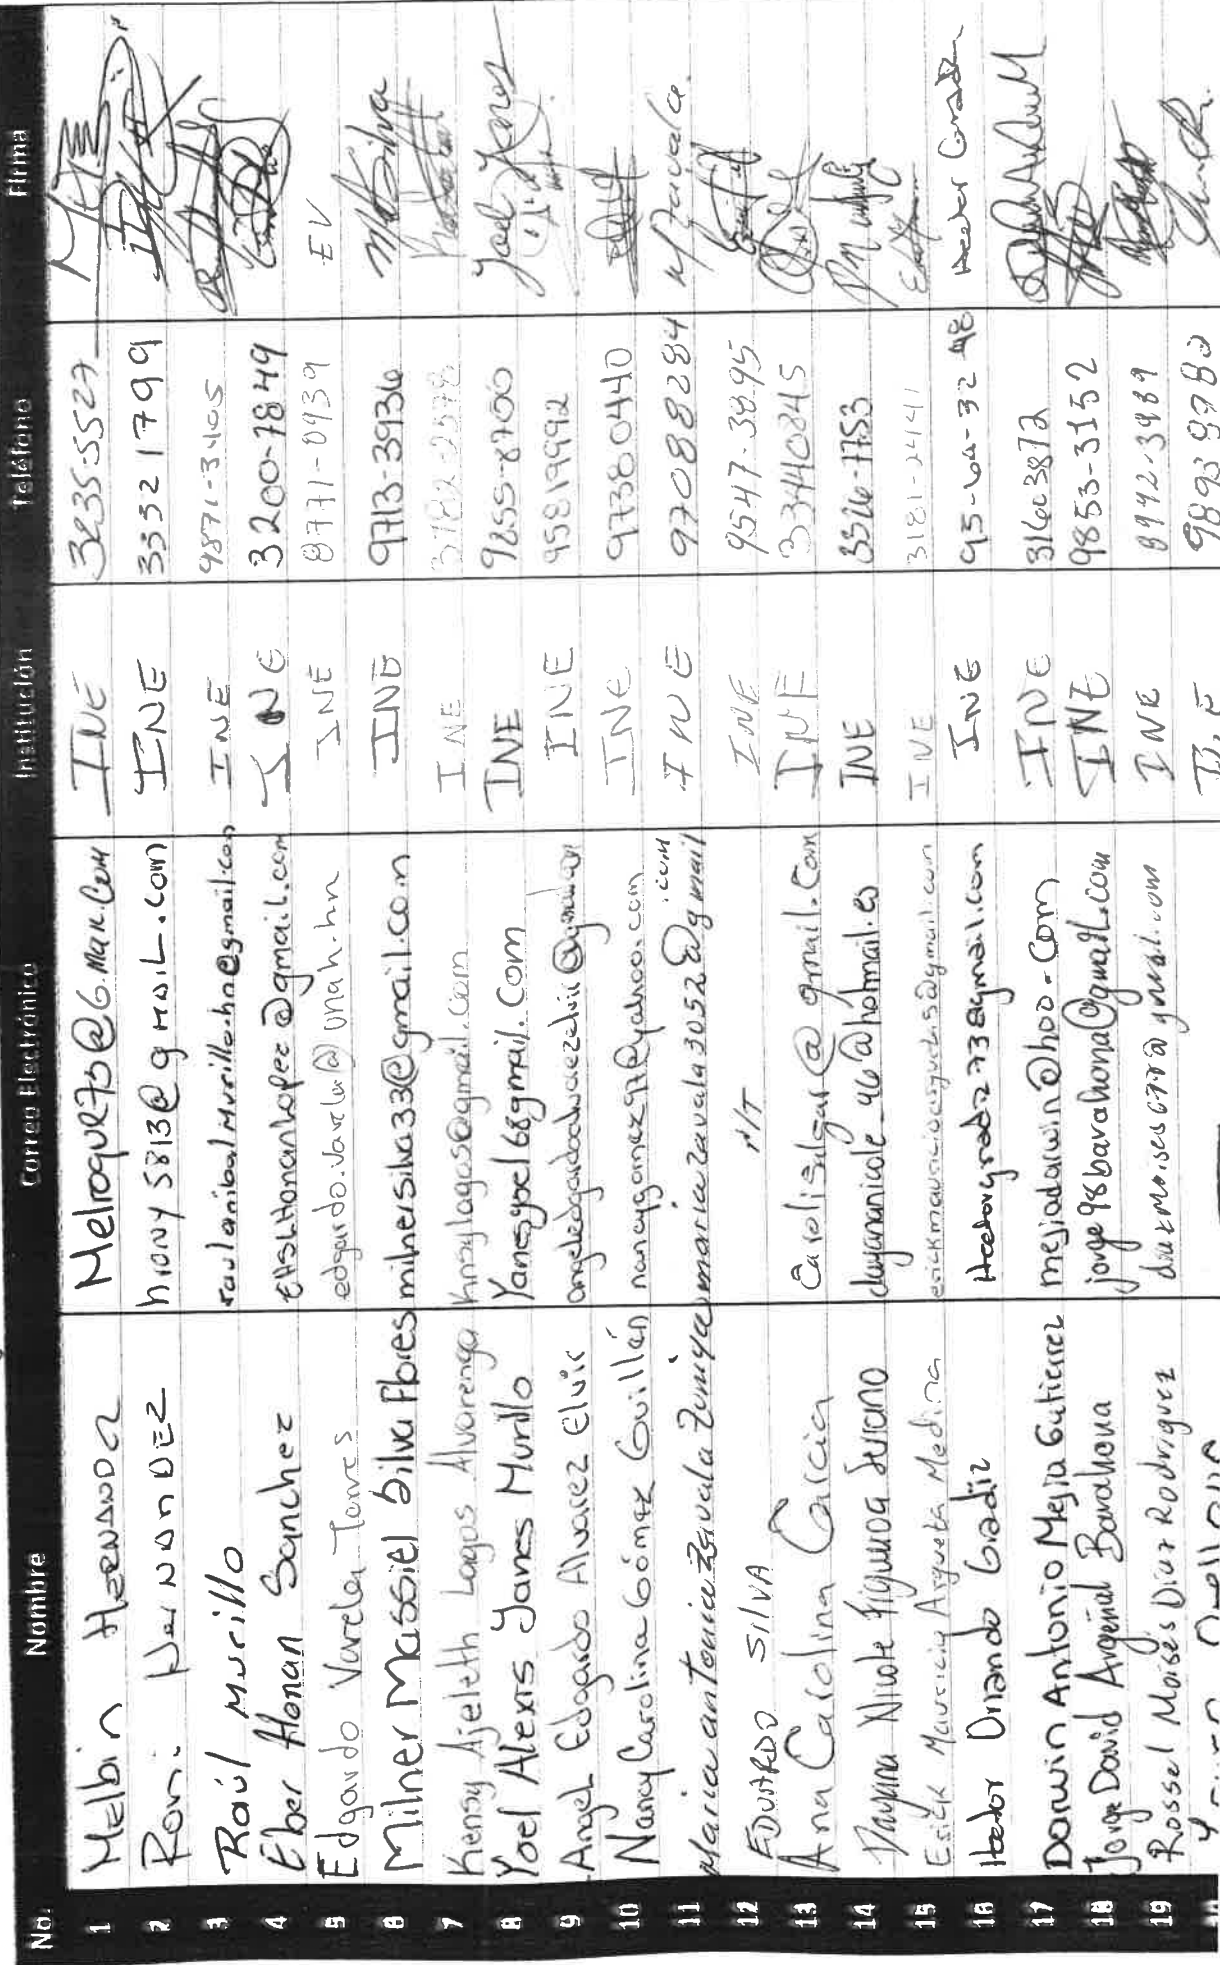 No. Nombre Correo Electrónico Institución Teléfono Firma
1 Melbin HERNANDEZ INE 3235-5527
2 Roni HerNANDEZ hrony5813@gmail.com INE 33521799
3 Raúl Murillo raulanibalmurillo.hn@gmail.com INE 9871-3405
4 Eber Honan Sanchez INE 3200-7849
5 Edgardo Varela Torres edgardo.varela@unah.hn INE 8771-0939 EV
6 Milner Massiel Silva Flores milnersilva33@gmail.com INE 9713-3936 MSilva
7 Kensy Ajeleth Lagos Alvarenga Kensylagos@gmail.com INE
8 Yoel Alexis Yanes Murillo Yanesyoel68gmail.com INE 9255-8700 Yoel Yanes
9 Angel Edgardo Alvarez Elvir INE 95819992
10 Nancy Carolina Gómez Guillén nancygomez97@yahoo.com INE 97380440
11 Maria antonia Zavala Zuniga mariazavala3052@gmail.com INE 97088284 MZavala.
12 EDUARDO SILVA N/T INE 9547-3895
13 Ana Carolina Garcia Carolisilgar@gmail.com INE 33440845
14 Dayana Nicole Figueroa Seriano dayananicole_46@hotmail.es INE 3326-7753
15 Erick Mauricio Argueta Medina erickmauricioargueta.s@gmail.com INE 3181-2441
16 Hector Orlando Gradiz INE 95-64-32-98 Hector Gradiz
17 Darwin Antonio Mejia Gutierrez mejiadarwin@hoo.com INE 31603872
18 Jorge David Argeñal Barahona jorge98barahona@gmail.com INE 9853-3152
19 Rossel Moisés Diaz Rodriguez INE 8942-3989